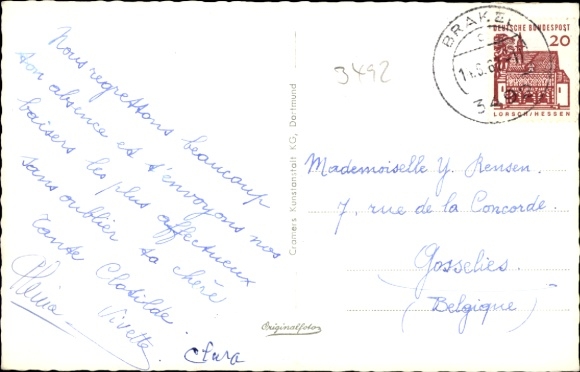 Nous regrettons beaucoup
ton absence et t'envoyons nos
baisers les plus affectueux
sans oublier ta chère
Tante Clotilde.
Vivette.
Cramers Kunstanstalt KG, Dortmund
Originalfoto
3492
BRAKEL
349
DEUTSCHE BUNDESPOST
20
LORSCH/HESSEN
Mademoiselle Y. Rensen.
7, rue de la Concorde.
Gosselies.
(Belgique)